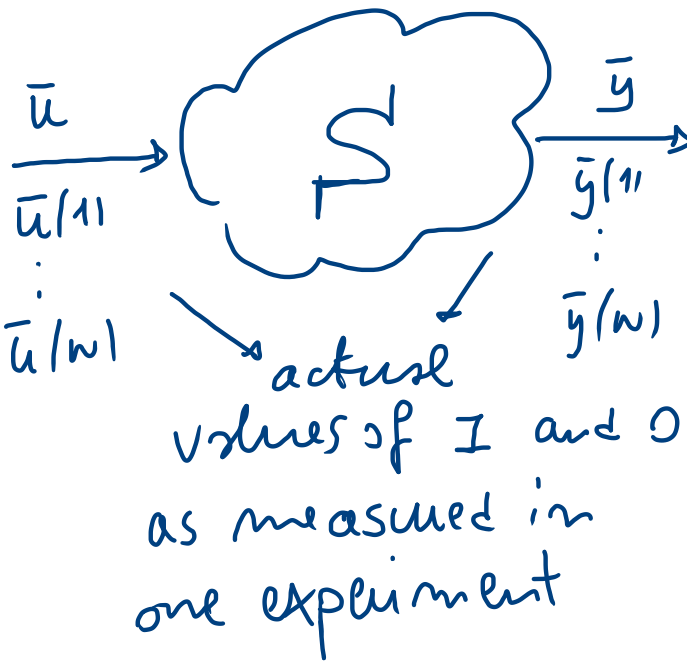 ū
S
ȳ
ū(1)
ȳ(1)
⋮
⋮
ū(N)
ȳ(N)
actual
values of I and O
as measured in
one experiment